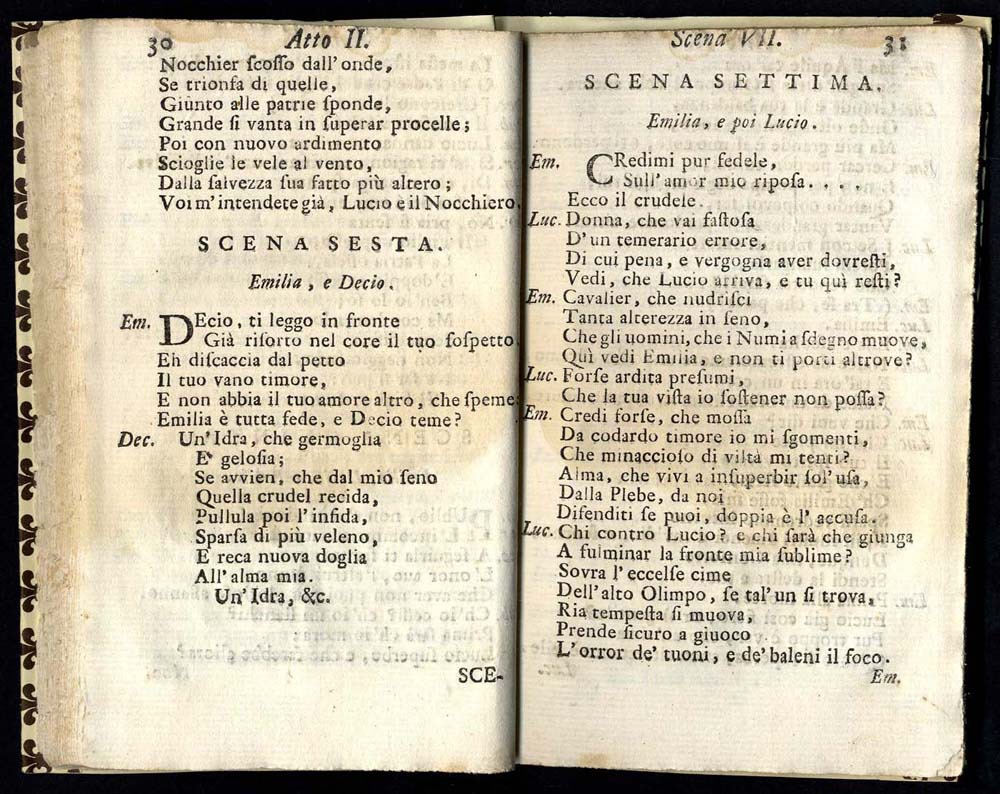 30
Atto II.
Nocchier ſcoſſo dall'onde,
Se trionfa di quelle,
Giùnto alle patrie ſponde,
Grande ſi vanta in ſuperar procelle;
Poi con nuovo ardimento
Scioglie le vele al vento,
Dalla ſalvezza ſua fatto più altero;
Voi m'intendete già, Lucio è il Nocchiero.
SCENA SESTA.
Emilia, e Decio.
Em. DEcio, ti leggo in fronte
Già riſorto nel core il tuo ſoſpetto
Eh diſcaccia dal petto
Il tuo vano timore,
E non abbia il tuo amore altro, che ſpeme:
Emilia è tutta fede, e Decio teme?
Dec. Un'Idra, che germoglia
E' geloſia;
Se avvien, che dal mio ſeno
Quella crudel recida,
Pullula poi l'infida,
Sparſa di più veleno,
E reca nuova doglia
All'alma mia.
Un'Idra, &c.
SCE-
Scena VII.
31
SCENA SETTIMA.
Emilia, e poi Lucio.
Em. CRedimi pur fedele,
Sull'amor mio ripoſa. . . .
Ecco il crudele.
Luc. Donna, che vai faſtoſa
D'un temerario errore,
Di cui pena, e vergogna aver dovreſti,
Vedi, che Lucio arriva, e tu quì reſti?
Em. Cavalier, che nudriſci
Tanta alterezza in ſeno,
Che gli uomini, che i Numi a ſdegno muove,
Quì vedi Emilia, e non ti porti altrove?
Luc. Forſe ardita preſumi,
Che la tua viſta io ſoſtener non poſſa?
Em. Credi forſe, che moſſa
Da codardo timore io mi ſgomenti,
Che minaccioſo di viltà mi tenti?
Alma, che vivi a inſuperbir ſol'uſa,
Dalla Plebe, da noi
Difenditi ſe puoi, doppia è l'accuſa.
Luc. Chi contro Lucio? e chi ſarà che giunga
A fulminar la fronte mia ſublime?
Sovra l'eccelſe cime
Dell'alto Olimpo, ſe tal'un ſi trova,
Ria tempeſta ſi muova,
Prende ſicuro a giuoco
L'orror de' tuoni, e de' baleni il foco.
Em.